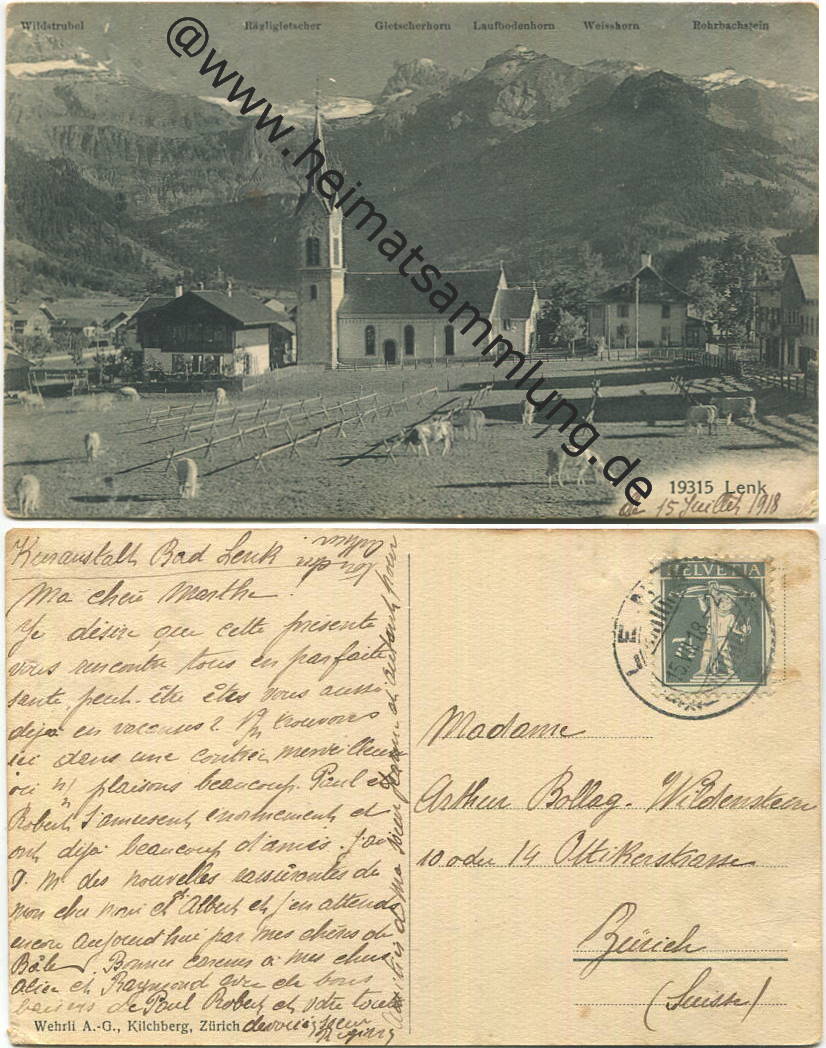 Wildstrubel Räzligletscher Gletscherhorn Laufbodenhorn Weisshorn Rohrbachstein
@www.heimatsammlung.de
19315 Lenk
le 15 Juillet 1918
Kuranstalt Bad Lenk
Ma chère Marthe
Je désire que cette présente
vous rencontre tous en parfaite
santé, peut-être êtes vous aussi
déjà en vacances?
ici dans une contrée merveilleuse
où plaisons beaucoup. Paul et
Robert s'amusent énormement et
ont déjà beaucoup d'amis. J'ai
des nouvelles rassurantes de
mon cher mari et Albert et j'en attends
encore aujourd'hui par mes chers de
Bâle. Bonnes caresses à mes chers
Alice et Raymond avec de bons
baisers de Paul Robert et votre toute
Wehrli A.-G., Kilchberg, Zürich
HELVETIA
Madame
Arthur Bollag-Wildenstein
10 oder 14 Ottikerstrasse
Zürich
(Suisse)